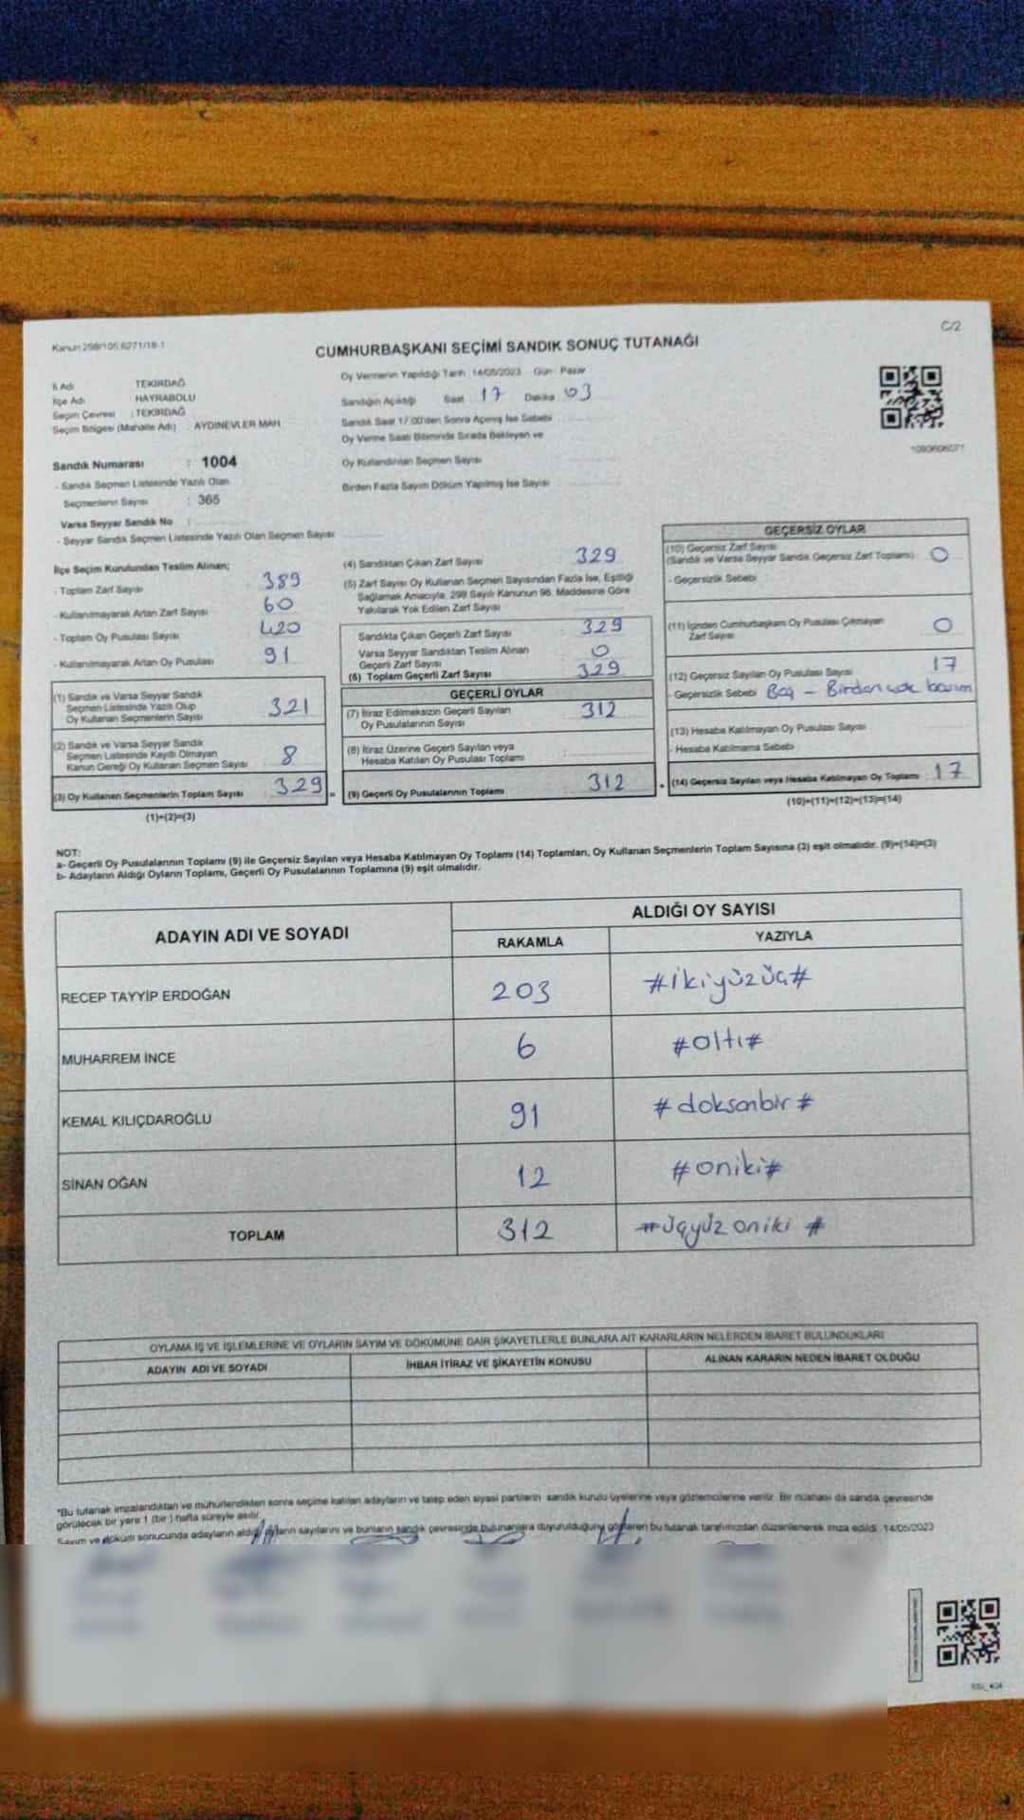 Kanun 298/105 6271/18-1
C/2
CUMHURBAŞKANI SEÇİMİ SANDIK SONUÇ TUTANAĞI
İl Adı TEKİRDAĞ
İlçe Adı HAYRABOLU
Seçim Çevresi : TEKİRDAĞ
Seçim Bölgesi (Mahalle Adı) AYDINEVLER MAH
Oy Vermenin Yapıldığı Tarih 14/05/2023 Gün Pazar
Sandığın Açıldığı Saat 17 Dakika 03
Sandık Saat 17.00'den Sonra Açılmış İse Sebebi
Oy Verme Saati Bitiminde Sırada Bekleyen ve
Oy Kullandırılan Seçmen Sayısı
Birden Fazla Sayım Döküm Yapılmış İse Sayısı
Sandık Numarası : 1004
- Sandık Seçmen Listesinde Yazılı Olan
Seçmenlerin Sayısı : 365
Varsa Seyyar Sandık No :
- Seyyar Sandık Seçmen Listesinde Yazılı Olan Seçmen Sayısı
İlçe Seçim Kurulundan Teslim Alınan;
- Toplam Zarf Sayısı 389
- Kullanılmayarak Artan Zarf Sayısı 60
- Toplam Oy Pusulası Sayısı 420
- Kullanılmayarak Artan Oy Pusulası 91
(1) Sandık ve Varsa Seyyar Sandık
Seçmen Listesinde Yazılı Olup
Oy Kullanan Seçmenlerin Sayısı 321
(2) Sandık ve Varsa Seyyar Sandık
Seçmen Listesinde Kayıtlı Olmayan
Kanun Gereği Oy Kullanan Seçmen Sayısı 8
(3) Oy Kullanan Seçmenlerin Toplam Sayısı 329
(1)+(2)=(3)
(4) Sandıktan Çıkan Zarf Sayısı 329
(5) Zarf Sayısı Oy Kullanan Seçmen Sayısından Fazla İse, Eşitliği
Sağlamak Amacıyla, 298 Sayılı Kanunun 98. Maddesine Göre
Yakılarak Yok Edilen Zarf Sayısı
Sandıkta Çıkan Geçerli Zarf Sayısı 329
Varsa Seyyar Sandıktan Teslim Alınan
Geçerli Zarf Sayısı 0
(6) Toplam Geçerli Zarf Sayısı 329
GEÇERLİ OYLAR
(7) İtiraz Edilmeksizin Geçerli Sayılan
Oy Pusulalarının Sayısı 312
(8) İtiraz Üzerine Geçerli Sayılan veya
Hesaba Katılan Oy Pusulası Toplamı
(9) Geçerli Oy Pusulalarının Toplamı 312
GEÇERSİZ OYLAR
(10) Geçersiz Zarf Sayısı
(Sandık ve Varsa Seyyar Sandık Geçersiz Zarf Toplamı) 0
- Geçersizlik Sebebi
(11) İçinden Cumhurbaşkanı Oy Pusulası Çıkmayan
Zarf Sayısı 0
(12) Geçersiz Sayılan Oy Pusulası Sayısı 17
- Geçersizlik Sebebi Boş - Birden çok basım
(13) Hesaba Katılmayan Oy Pusulası Sayısı
- Hesaba Katılmama Sebebi
(14) Geçersiz Sayılan veya Hesaba Katılmayan Oy Toplamı 17
(10)+(11)+(12)+(13)=(14)
NOT:
a- Geçerli Oy Pusulalarının Toplamı (9) ile Geçersiz Sayılan veya Hesaba Katılmayan Oy Toplamı (14) Toplamları, Oy Kullanan Seçmenlerin Toplam Sayısına (3) eşit olmalıdır. (9)+(14)=(3)
b- Adayların Aldığı Oyların Toplamı, Geçerli Oy Pusulalarının Toplamına (9) eşit olmalıdır.
ADAYIN ADI VE SOYADI
ALDIĞI OY SAYISI
RAKAMLA YAZIYLA
RECEP TAYYİP ERDOĞAN 203 #ikiyüzüç#
MUHARREM İNCE 6 #altı#
KEMAL KILIÇDAROĞLU 91 #doksanbir#
SİNAN OĞAN 12 #oniki#
TOPLAM 312 #üçyüz oniki #
OYLAMA İŞ VE İŞLEMLERİNE VE OYLARIN SAYIM VE DÖKÜMÜNE DAİR ŞİKAYETLERLE BUNLARA AİT KARARLARIN NELERDEN İBARET BULUNDUKLARI
ADAYIN ADI VE SOYADI İHBAR İTİRAZ VE ŞİKAYETİN KONUSU ALINAN KARARIN NEDEN İBARET OLDUĞU
*Bu tutanak imzalandıktan ve mühürlendikten sonra seçime katılan adayların ve talep eden siyasi partilerin sandık kurulu üyelerine veya gözlemcilerine verilir. Bir nüshası da sandık çevresinde
görülecek bir yere 1 (bir) hafta süreyle asılır.
Sayım ve döküm sonucunda adayların aldığı oyların sayılarını ve bunların sandık çevresinde bulunanlara duyurulduğunu gösteren bu tutanak tarafımızdan düzenlenerek imza edildi. 14/05/2023